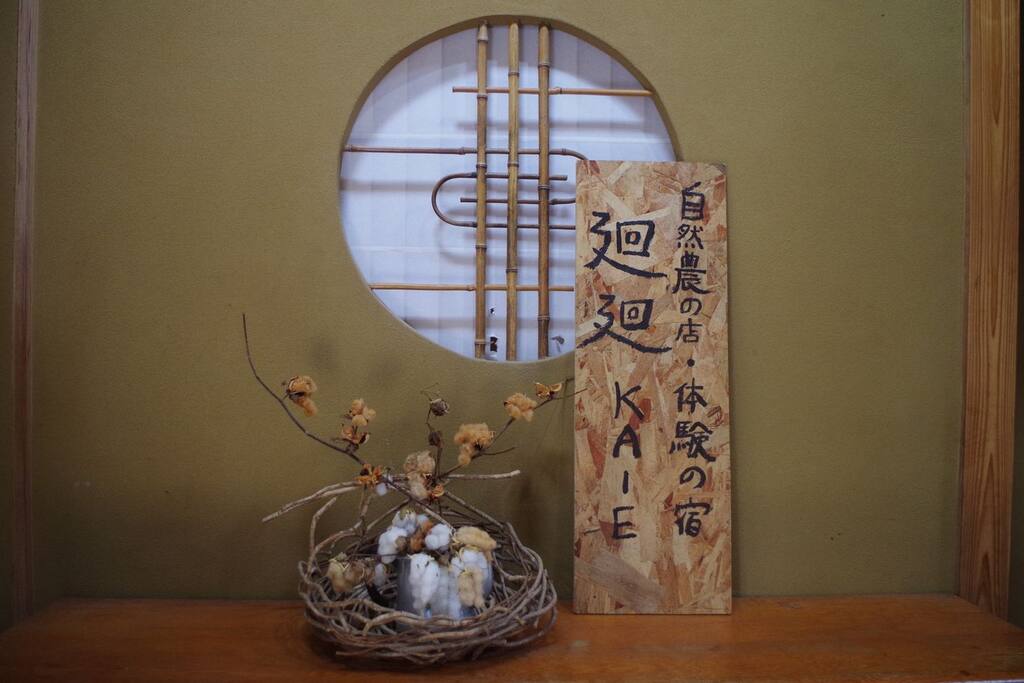 自然農の店・体験の宿
廻廻 KAIE